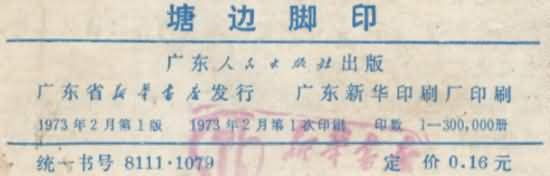 塘边脚印
广东人民出版社出版
广东省新华书店发行 广东新华印刷厂印刷
1973年2月第1版 1973年2月第1次印刷 印数 1—300,000册
统一书号 8111·1079 定 价 0.16 元